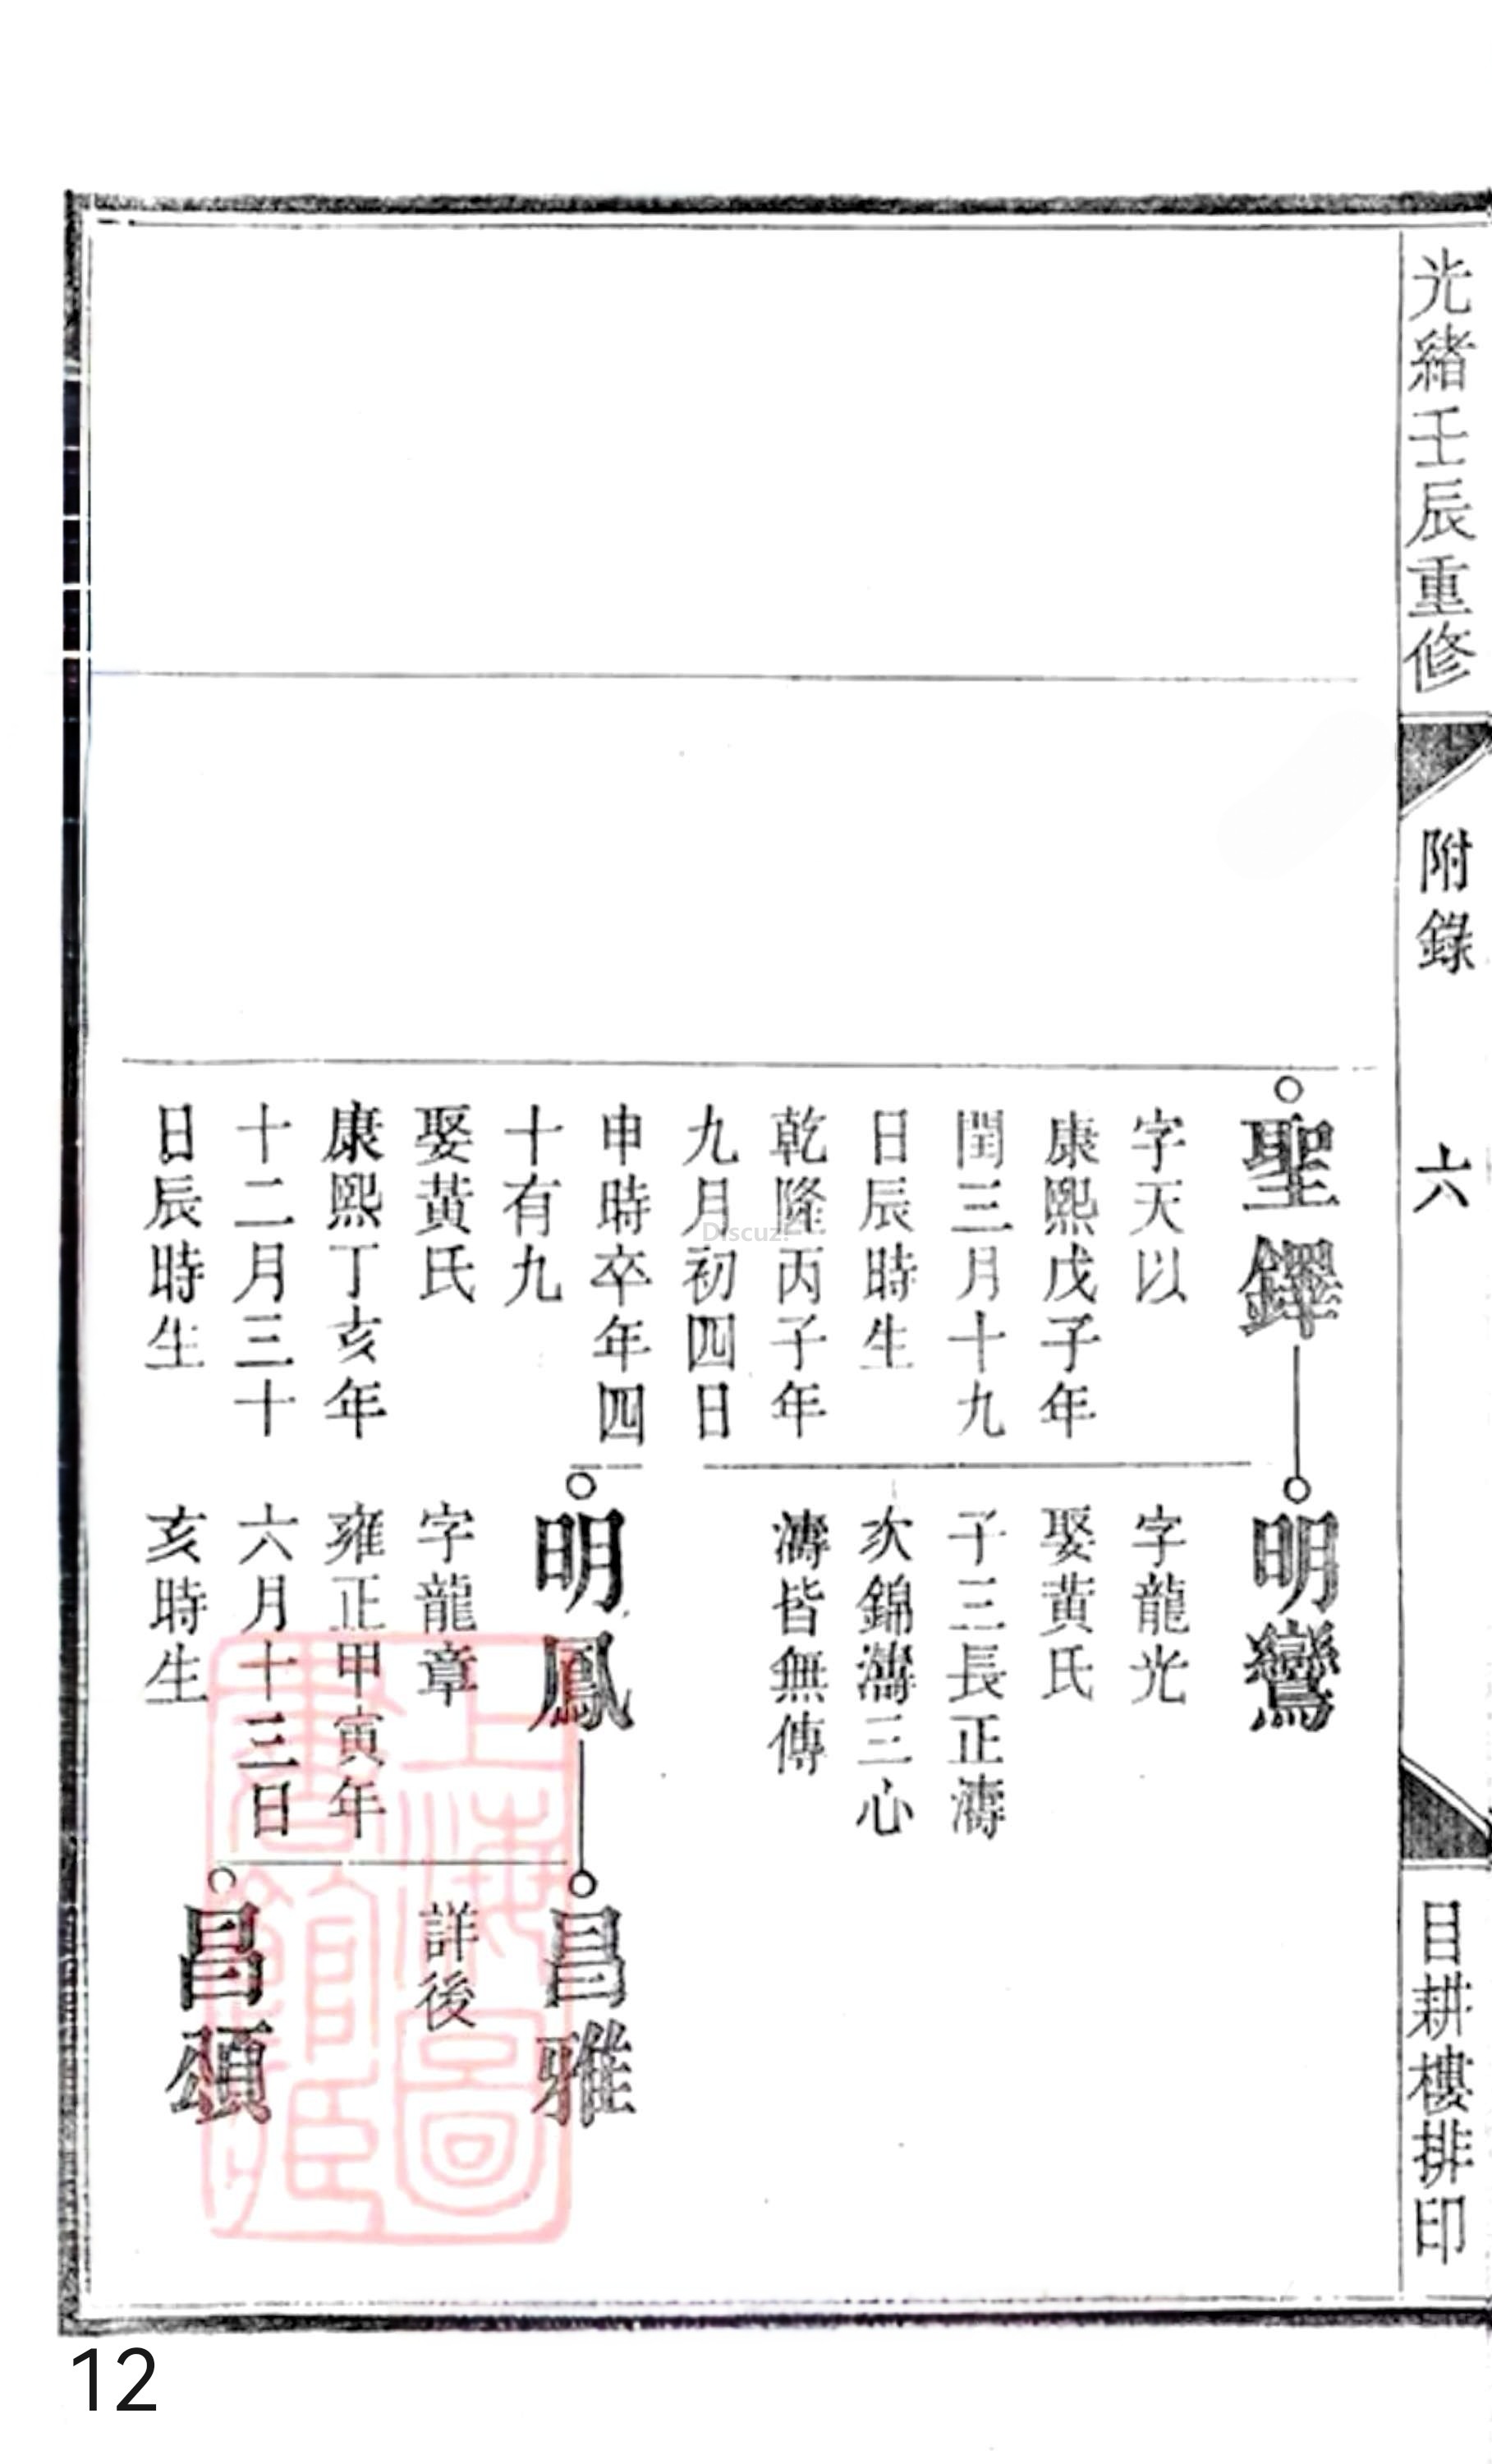 光緒壬辰重修
附錄
六
目耕樓排印
聖鐸
字天以
康熙戊子年
閏三月十九
日辰時生
乾隆丙子年
九月初四日
申時卒年四
十有九
娶黃氏
康熙丁亥年
十二月三十
日辰時生
明鸞
字龍光
娶黃氏
子三長正濤
次錦濤三心
濤皆無傳
明鳳
字龍章
雍正甲寅年
六月十三日
亥時生
昌雅
詳後
昌頌
上海圖
書館藏
Discuz!
12